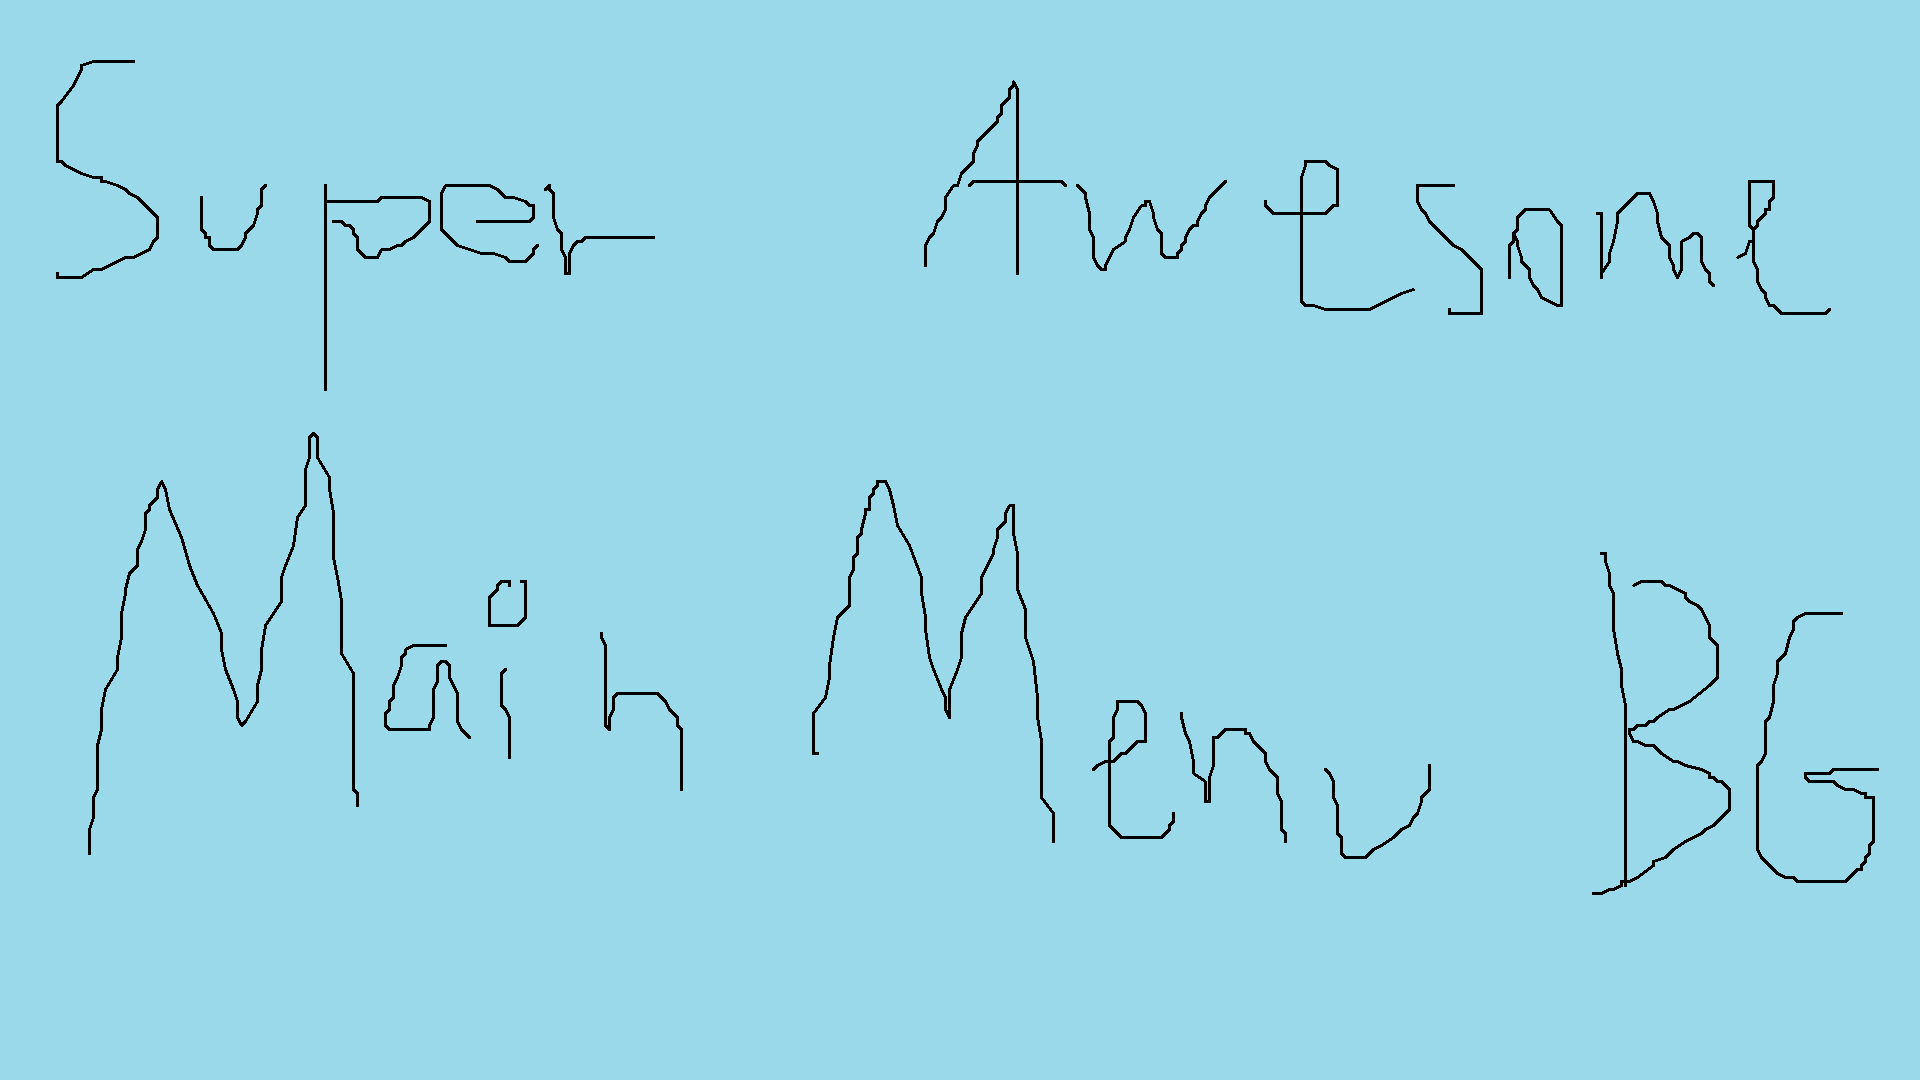 Super Awesome
Main Menu BG